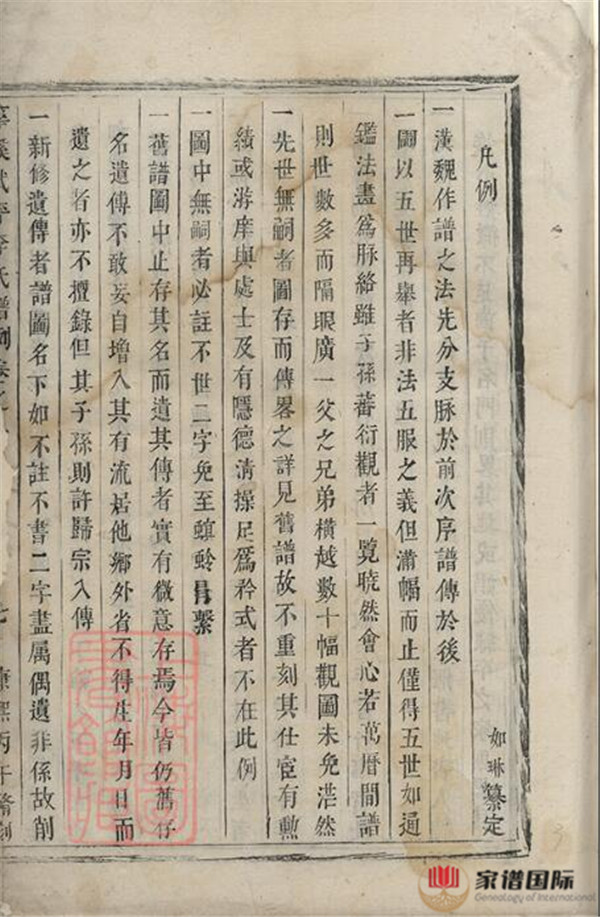 凡例
如琳纂定
一漢魏作譜之法先分支脉於前次序譜傳於後
一圖以五世再舉者非法五服之義但滿幅而止僅得五世如通
鑑法盡爲脉絡雖子孫蕃衍觀者一覧曉然會心若萬曆間譜
則世數多而隔眼廣一父之兄弟橫越數十幅觀圖未免茫然
一先世無嗣者圖存而傳畧之詳見舊譜故不重刻其仕宦有勲
績或游庠與處士及有隱德清操足爲矜式者不在此例
一圖中無嗣者必註不世二字免至螟蛉冐繫
一舊譜圖中止存其名而遺其傳者實有微意存焉今皆仍舊存
名遺傳不敢妄自增入其有流居他鄉外省不得生年月日而
遺之者亦不擅錄但其子孫則許歸宗入傳
一新修遺傳者譜圖名下如不註不書二字盡属偶遺非係故削
李氏譜
七
康熙丙午脩刻
家谱国际
Genealogy of International